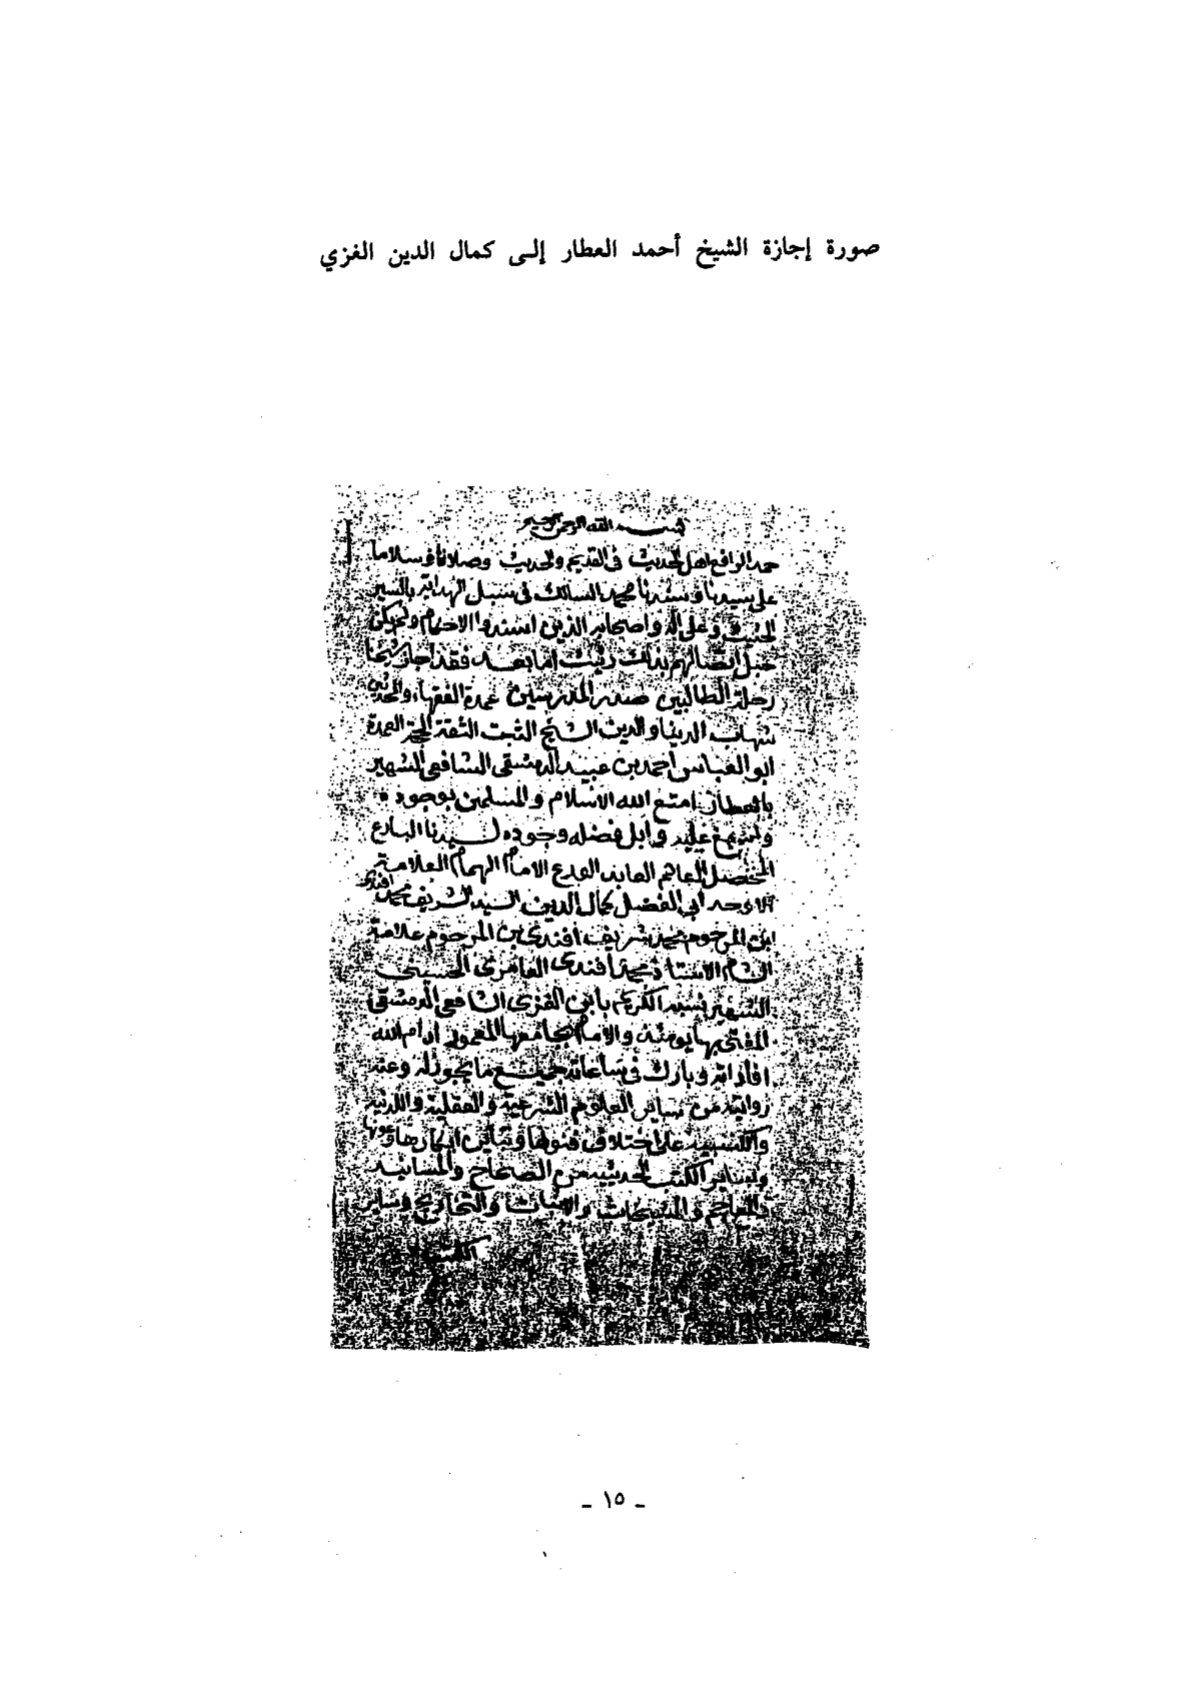 صورة إجازة الشيخ أحمد العطار إلى كمال الدين الغزي
بسم الله الرحمن الرحيم
حمدا لرافع اهل الحديث فى القديم والحديث وصلاتا وسلاما
على سيدنا وسندنا محمد السالك فى سبل الهداية بالسير
الحثيث وعلى اله واصحابه الذين اسندوا الاحكام ولم يكن
حبل اتصالهم بذلك رثيث اما بعد فقد اجاز شيخنا
رحلة الطالبين صدر المدرسين عمدة الفقهاء والمحدثين
شهاب الدنيا والدين الشيخ الثبت الثقة الحجة العمدة
ابو العباس احمد بن عبيد الدمشقى الشافعى الشهير
بالعطار امتع الله الاسلام والمسلمين بوجوده
وابل فضله وجوده لسيدنا البارع
المفضل العالم العابد الورع الامام الهمام العلامة
الاوحد ابى الفضل كمال الدين السيد الشريف محمد افندى
ابن المرحوم محمد شريف افندى بن المرحوم علامة
الشام الاستاذ محمد افندى العامرى الحسينى
الشهير نسبه الكريم بابن الغزى الشافعى الدمشقى
المفتى بها يومئذ والامام بجامعها المعمور ادام الله
افاداته وبارك فى ساعاته جميع ما يجوز له وعنه
روايته من سائر العلوم الشرعية والعقلية واللدنية
والكسبية على اختلاف فنونها وتباين ابكارها وعونها
وبسائر الكتب الحديثية من الصحاح والمسانيد
والمعاجم والمشيخات والاثبات والتخاريج وسائر
الكتب
ـ ١٥ ـ